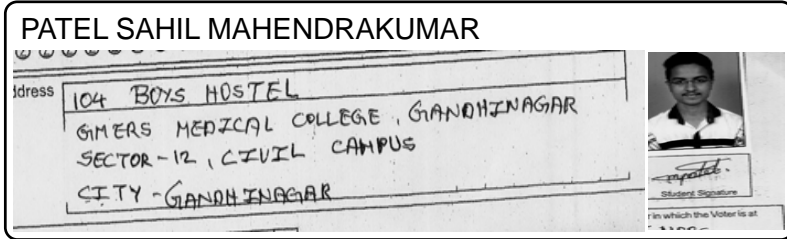 PATEL SAHIL MAHENDRAKUMAR
ddress
104 BOYS HOSTEL
GMERS MEDICAL COLLEGE, GANDHINAGAR
SECTOR-12, CIVIL CAMPUS
CITY-GANDHINAGAR
Student Signature
r in which the Voter is at